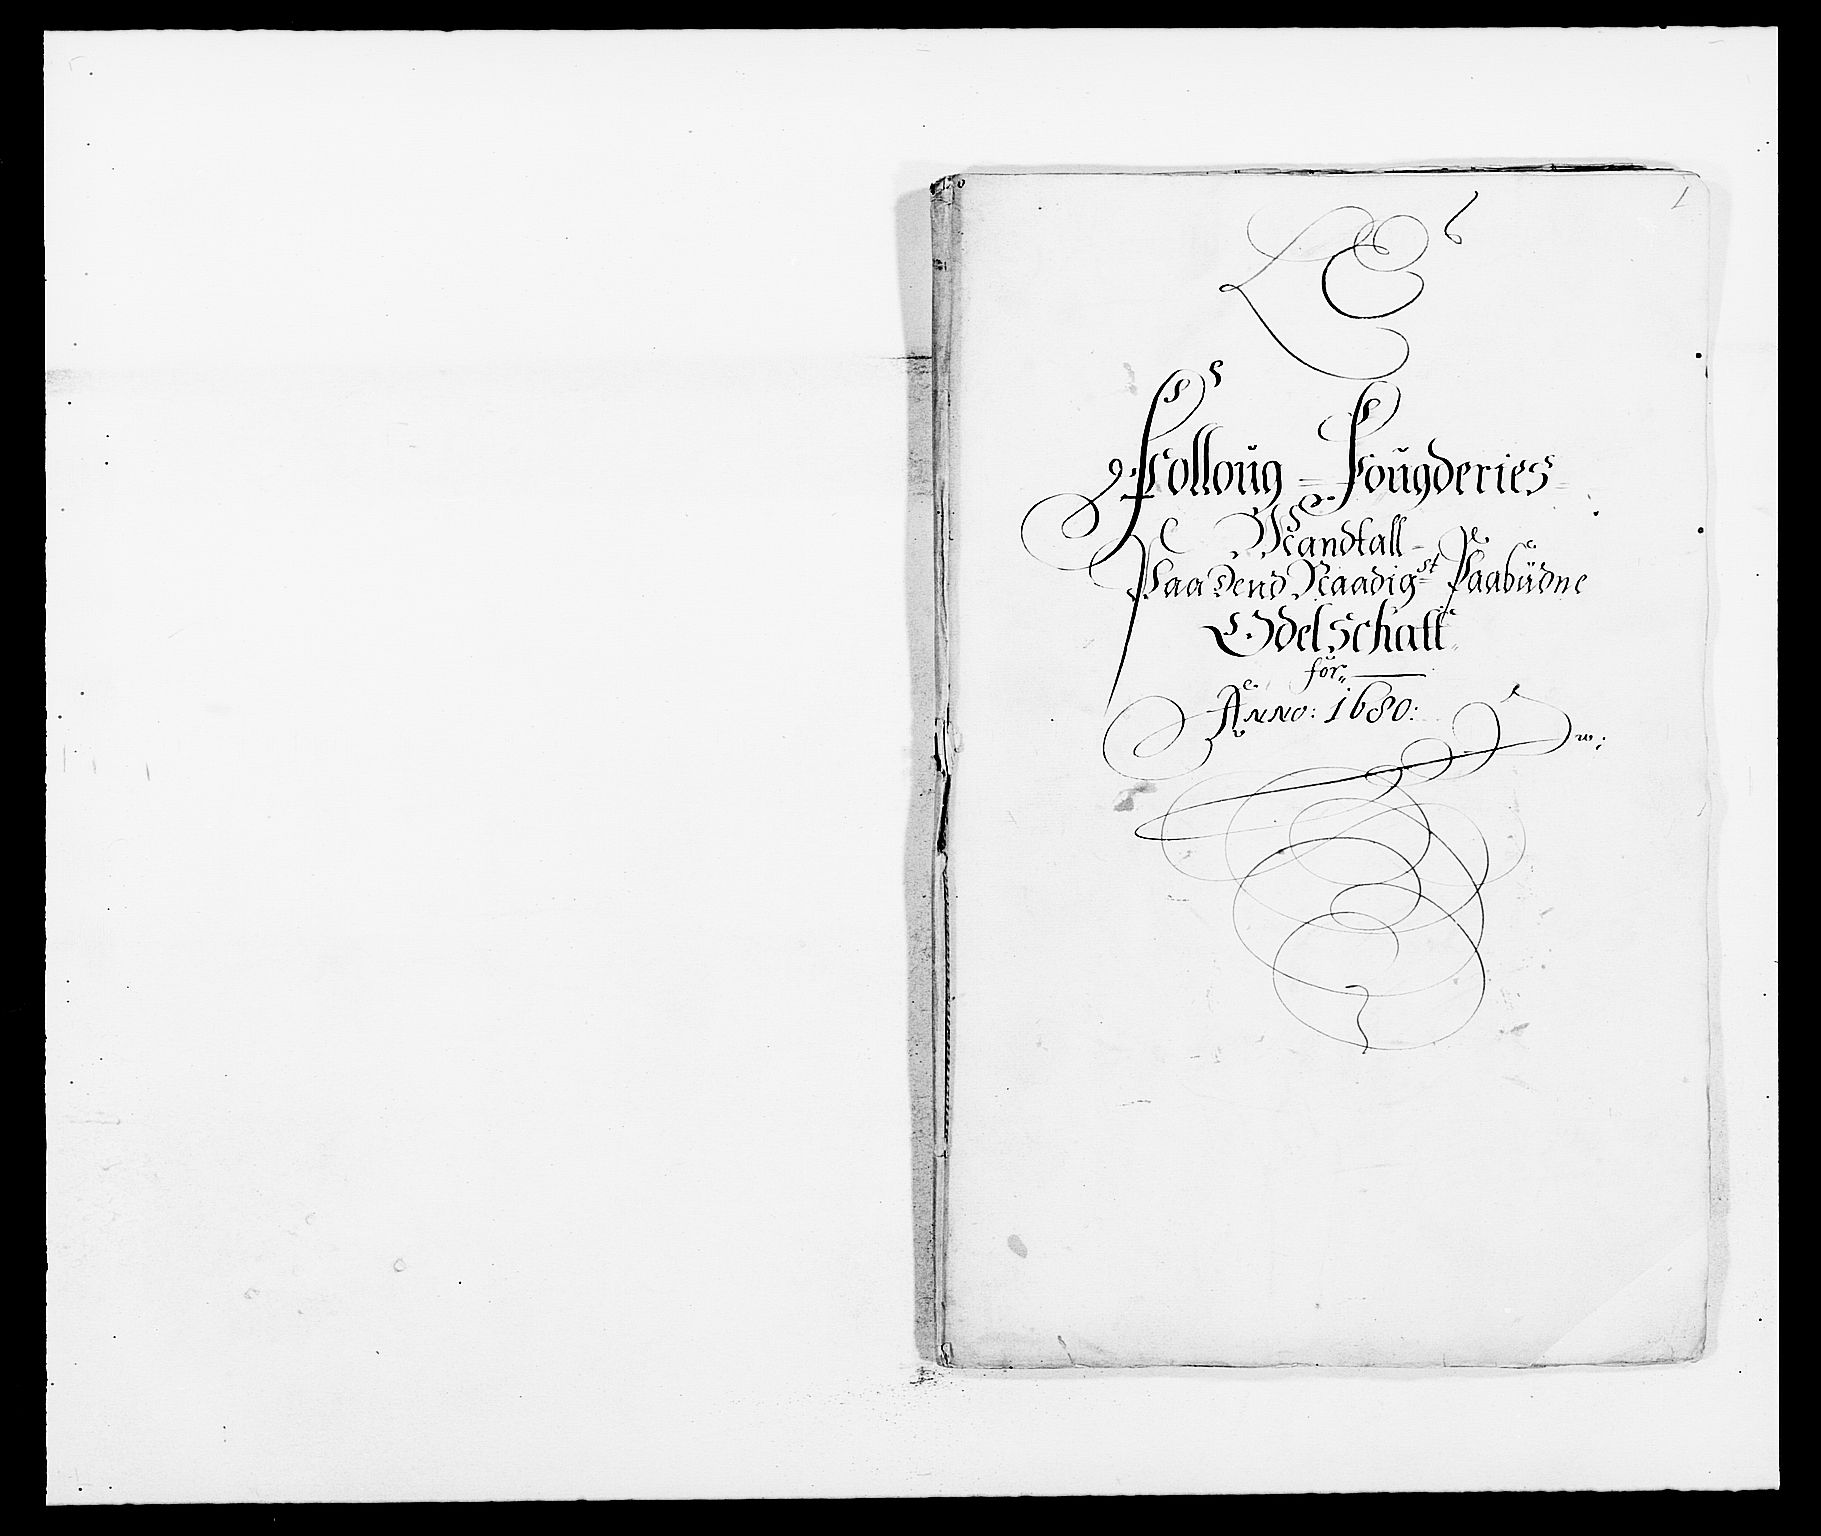 1
L C 6
Folloug = Fougderies
Mandtall
Paa dend Naadigst Paabüdne
Odelschatt
for
Anno: 1680: